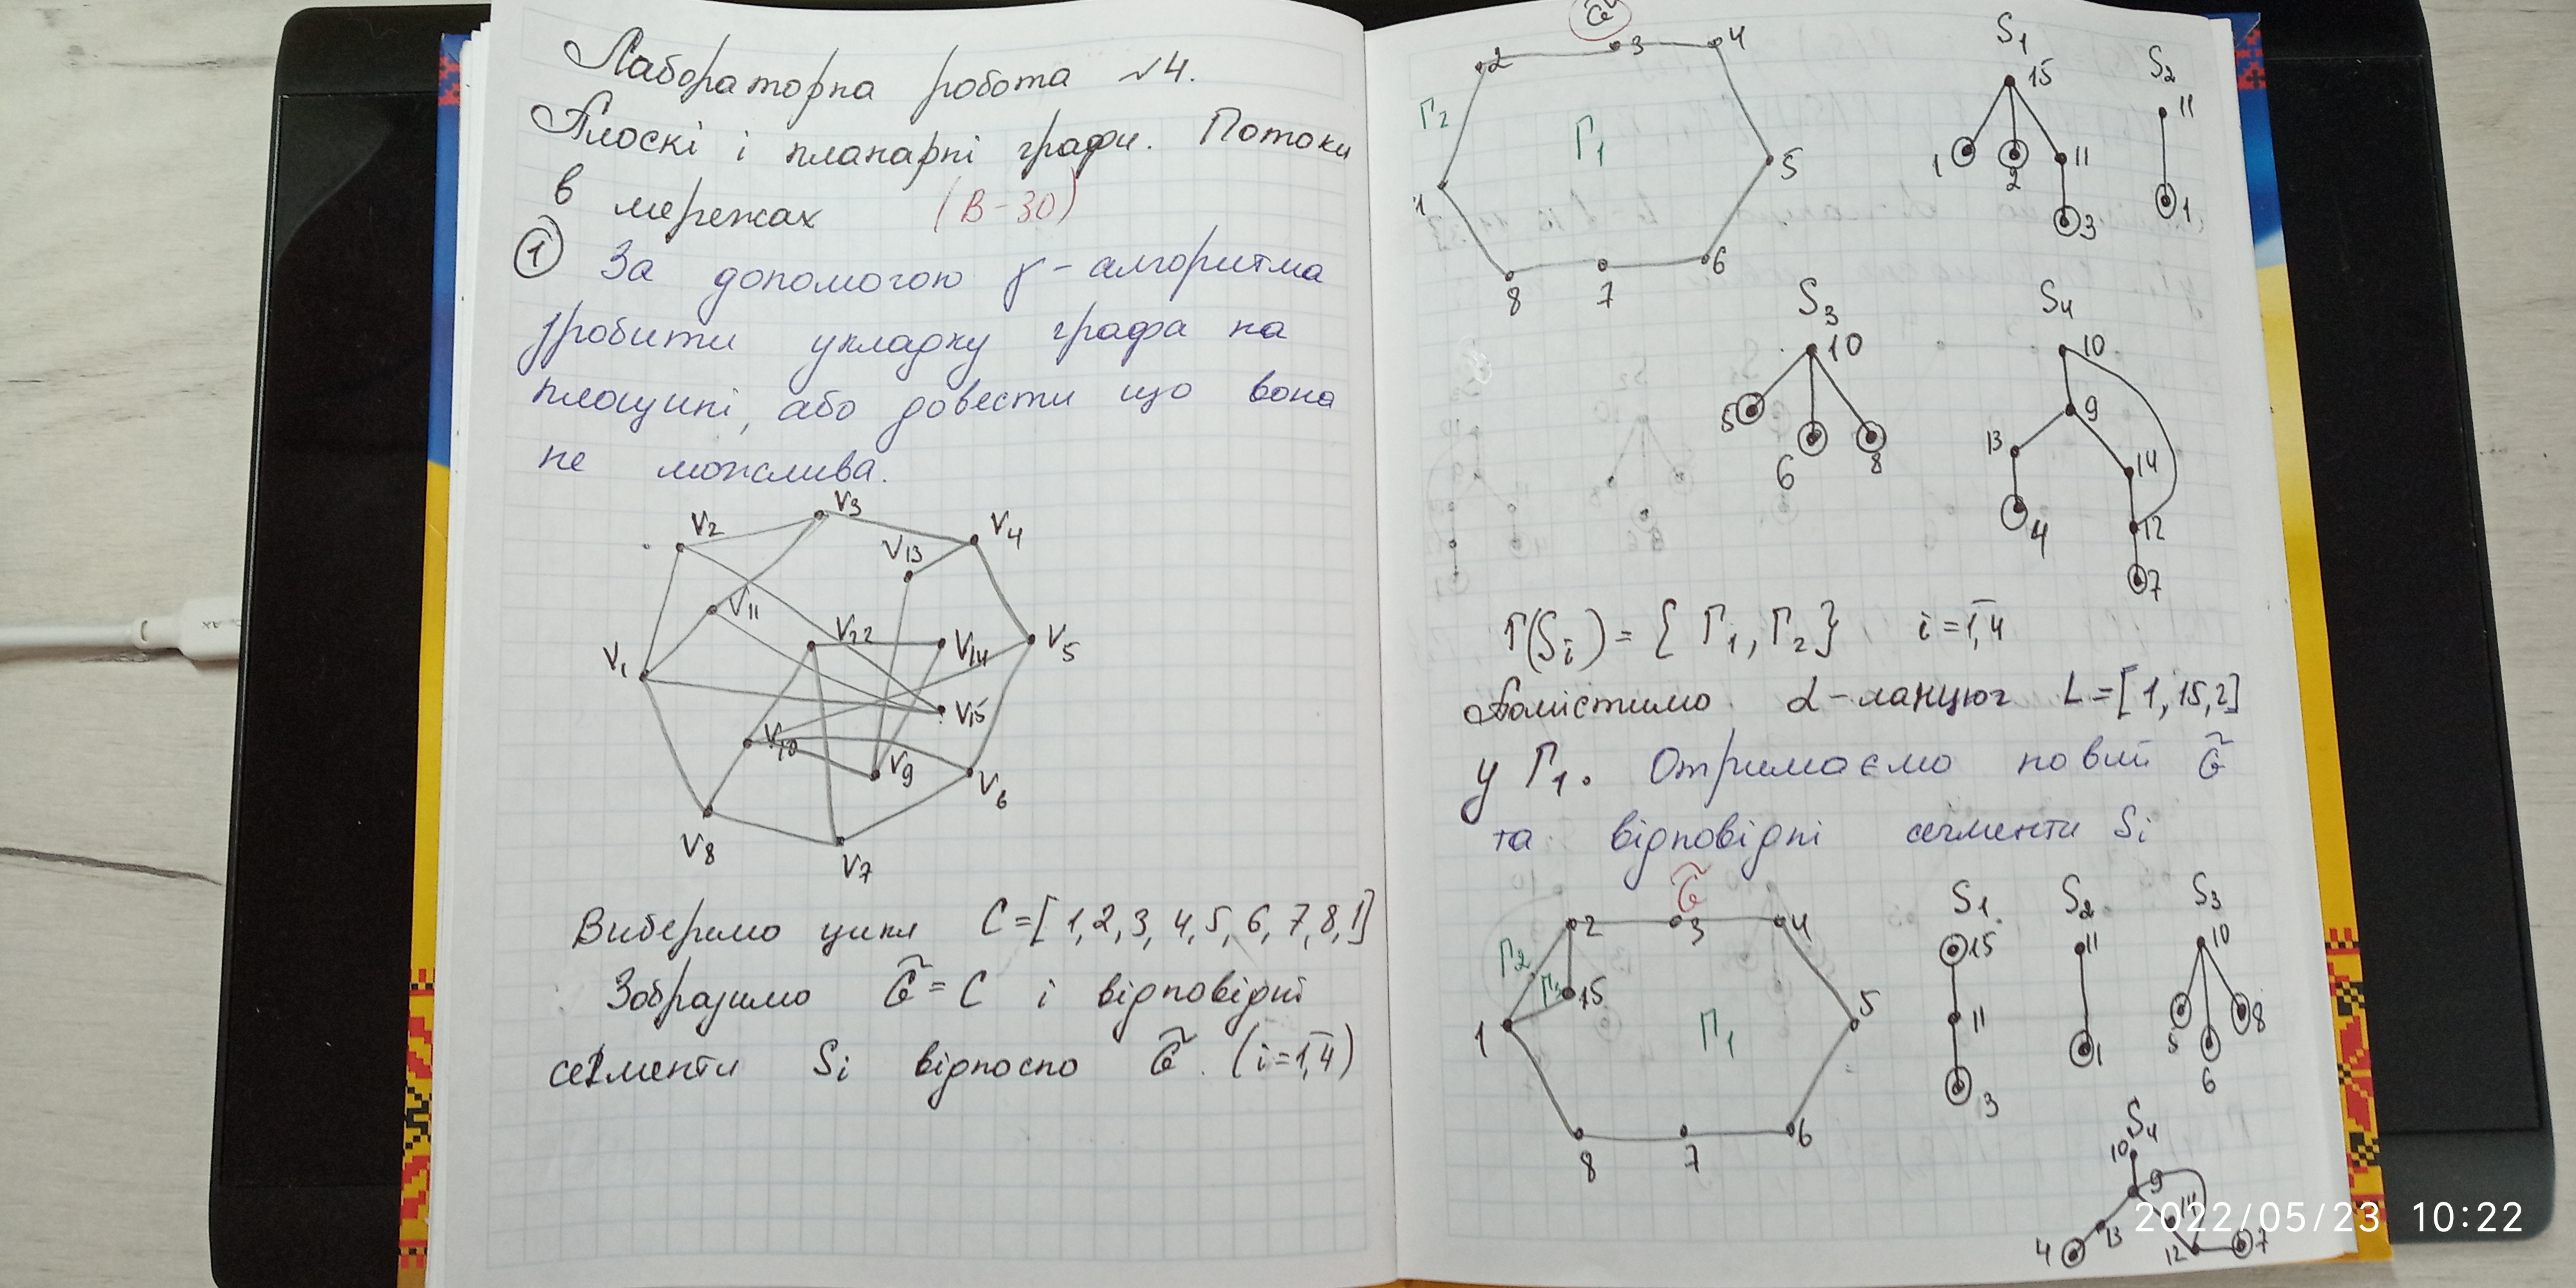 Лабораторна робота №4.
Плоскі і планарні графи. Потоки
в мережах (В-30)
① За допомогою γ-алгоритма
зробити укладку графа на
площині, або довести що вона
не можлива.
V3
V2
V4
V13
V11
V12
V14
V5
V1
V15
V10
V9
V6
V8
V7
Виберемо цикл C=[1,2,3,4,5,6,7,8,1]
Зобразимо G̃=C і відповідні
сегменти Si відносно G̃. (i=1,4)
G̃
2 3 4
Г2 Г1
1 5
8 7 6
S1
15
1 2 11
3
S2
11
1
S3
10
5 6 8
S4
10
9
13 14
4 12
7
Г(Si)={Г1,Г2} i=1,4
Помістимо α-ланцюг L=[1,15,2]
у Г1. Отримаємо новий G̃
та відповідні сегменти Si
G̃
2 3 4
Г2
Г3 15
1 Г1 5
8 7 6
S1
15
11
3
S2
11
1
S3
10
5 6 8
S4
10
9
14
13
4 12 7
2022/05/23 10:22